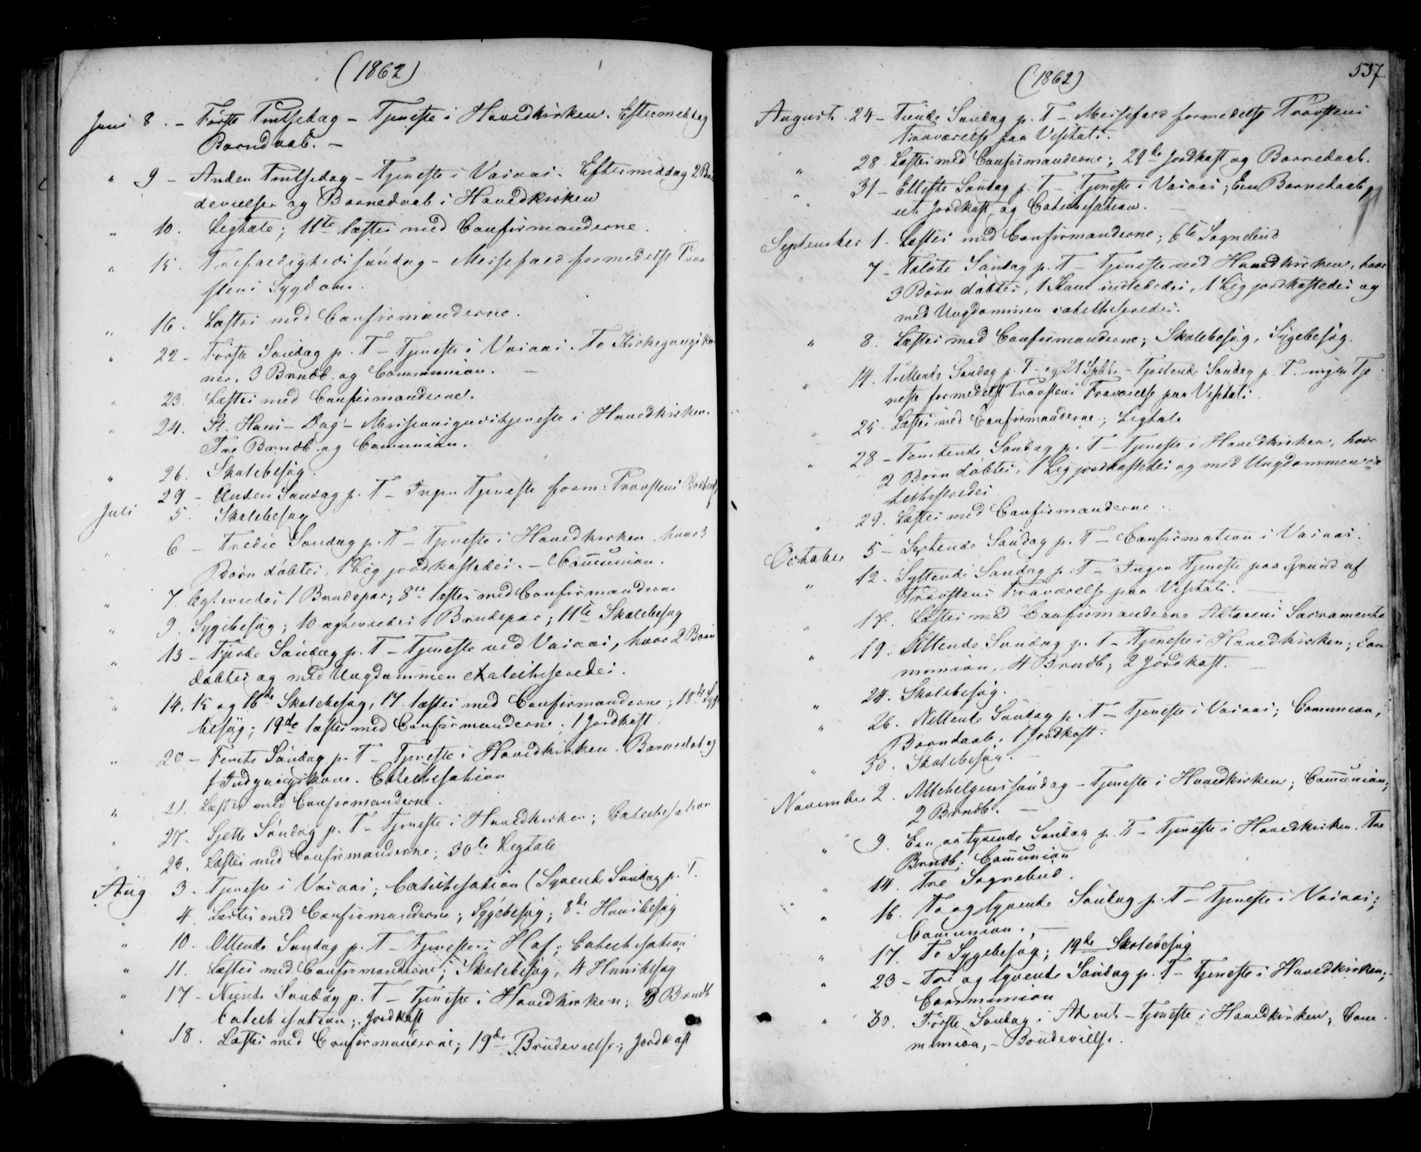 (1862)
Juni 8. - Første Pintsedag - Tjeneste i Hovedkirken. Eftermiddag
Barnedaab. -
" 9 - Anden Pintsedag - Tjeneste i Vaisaas. Eftermiddag 2 Bru
devielser og Barnedaab i Hovedkirken
" 10. Ligtale; 11te læster med Confirmanderne.
" 15. Trefoldighedssøndag - Messefald formedelst Prov
stens Sygdom.
" 16. Læster med Confirmanderne.
" 22. Første Søndag p. T - Tjeneste i Vaisaas. To Kirkegangsko
ner, 3 Brndb. og Communion. -
" 23. Læster med Confirmanderne.
" 24. St. Hans-Dag - Missionsgudstjeneste i Hovedkirken.
Tre Barndb. og Comunion.
" 26. Skolebesøg
" 29 - Anden Søndag p. T - Ingen Tjeneste form: Provstens
Juli 5. Skolebesøg
" 6 - Tredie Søndag p. T - Tjeneste i Hovedkirken, hvor 3
Børn døbtes, 1 Lig jordkastedes. - Communion.
" 7. Ægteviedes 1 Brudepar; 8de læster med Confirmanderne
" 9. Sygebesøg; 10 ægteviedes 1 Brudepar; 11te Skolebesøg
" 13 - Fjerde Søndag p. T - Tjeneste ved Vaisaas, hvor 2 Børn
døbtes og med Ungdommen catechiseredes.
" 14, 15 og 16de Skolebesøg, 17. læster med Confirmanderne; 18de Syge
besøg; 19de læster med Confirmanderne. 1 Jordkast.
" 20 - Femte Søndag p. T - Tjeneste i Hovedkirken. Barnedab og
1 Indgangskone. Catechisation
" 21. Læster med Confirmanderne.
" 27. Sjette Søndag p. T - Tjeneste i Hovedkirken; Catechisation
28. Læster med Confirmanderne; 30te Ligtale
Aug 3. Tjeneste i Vaisaas; Catechisation (Syvende Søndag p. T.
" 4. Læster med Confirmanderne; Sygebesøg; 8de Huusbesøg
" 10. Ottende Søndag p. T - Tjeneste i Hof; Catechisation
" 11. Læster med Confirmanderne; Skolebesøg, 4 Huusbesøg
" 17 - Niende Søndag p. T - Tjeneste i Hovedkirken; 3 Barndb
Catechisation; Jordkast
" 18. Læster med Confirmanderne; 19de Brudevielse; Jordkast
(1862)
537
August. 24 - Tiende Søndag p. T - Messefald formedelst Provstens
Fraværelse paa Visitats.
" 28. Læster med Confirmanderne; 29de Jordkast og Barnedaab.
" 31 - Ellefte Søndag p. T - Tjeneste i Vaisaas; Een Barnedaab,
et Jordkast, og Catechisation.
September 1. Læster med Confirmanderne; 6te Sognebud
7 - Tolvte Søndag p. T - Tjeneste ved Hovedkirken, hvor
3 Børn døbtes, 1 Kone indlededes, 1 Lig jordkastedes og
med Ungdommen catechiseredes.
" 8. Læster med Confirmanderne; Skolebesøg, Sygebesøg.
" 14. Trettende Søndag p. T - og 21 Septbr. - Fjortende Søndag p. T. ingen Tje
neste formedelst Provstens Fraværelse paa Visitats.
" 25. Læster med Confirmanderne; Ligtale
" 28 - Femtende Søndag p. T - Tjeneste i Hovedkirken, hvor
2 Børn døbtes, 1 Lig jordkastedes og med Ungdommen ca
techiseredes
" 29. Læster med Confirmanderne.
October 5 - Sextende Søndag p. T - Confirmation i Vaisaas.
" 12. Syttende Søndag p. T - Ingen Tjeneste paa Grund af
Provstens Fraværelse paa Visitats. -
" 17. Læster med Confirmanderne Alterens Sacramente
" 19. Attende Søndag p. T - Tjeneste i Hovedkirken; Com
munion, 4 Brndb; 2 Jordkast. -
" 24. Skolebesøg.
" 26. Nittende Søndag p. T - Tjeneste i Vaisaas; Communion,
Barndaab. 1 Jordkast.
" 30. Skolebesøg. -
November 2. Allehelgenssøndag - Tjeneste i Hovedkirken; Communion,
2 Brndb. -
" 9. En og tyvende Søndag p. T - Tjeneste i Hovedkirken. Tre
Brndb. Communion
" 14. Tre Sognebud.
" 16. To og tyvende Søndag p. T - Tjeneste i Vaisaas;
Communion. -
" 17. To Sygebesøg; 19de Skolebesøg
" 23 - Tre og tyvende Søndag p. T - Tjeneste i Hovedkirken;
Communion
" 30. Første Søndag i Advent - Tjeneste i Hovedkirken; Com
munion, - Brudevielse.